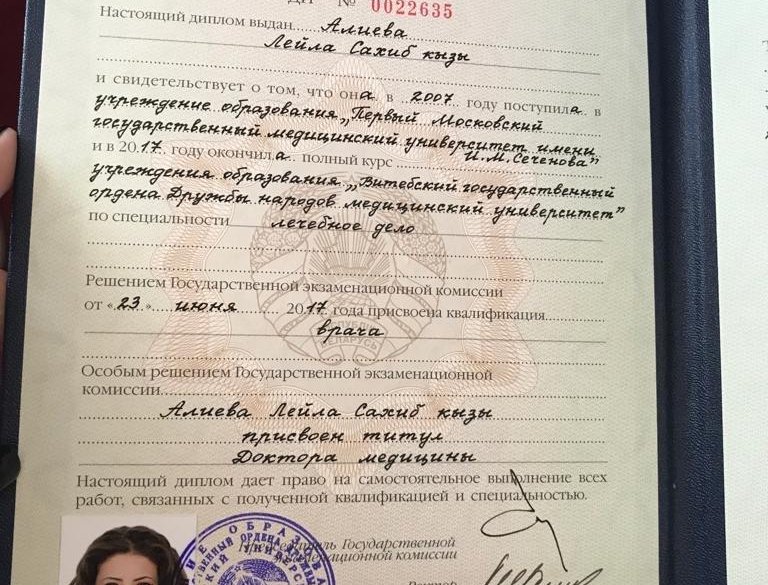 ДП № 0022635
Настоящий диплом выдан Алиева
Лейла Сахиб кызы
и свидетельствует о том, что она в 2007 году поступила в
учреждение образования „Первый Московский
государственный медицинский университет имени
И.М.Сеченова”
и в 2017. году окончила полный курс
учреждения образования „Витебский государственный
ордена Дружбы народов медицинский университет”
по специальности лечебное дело
Решением Государственной экзаменационной комиссии
от «23» июня 2017 года присвоена квалификация
врача
БЕЛАРУСЬ
Особым решением Государственной экзаменационной
комиссии
Алиева Лейла Сахиб кызы
присвоен титул
Доктора медицины
Настоящий диплом дает право на самостоятельное выполнение всех
работ, связанных с полученной квалификацией и специальностью.
Председатель Государственной
экзаменационной комиссии